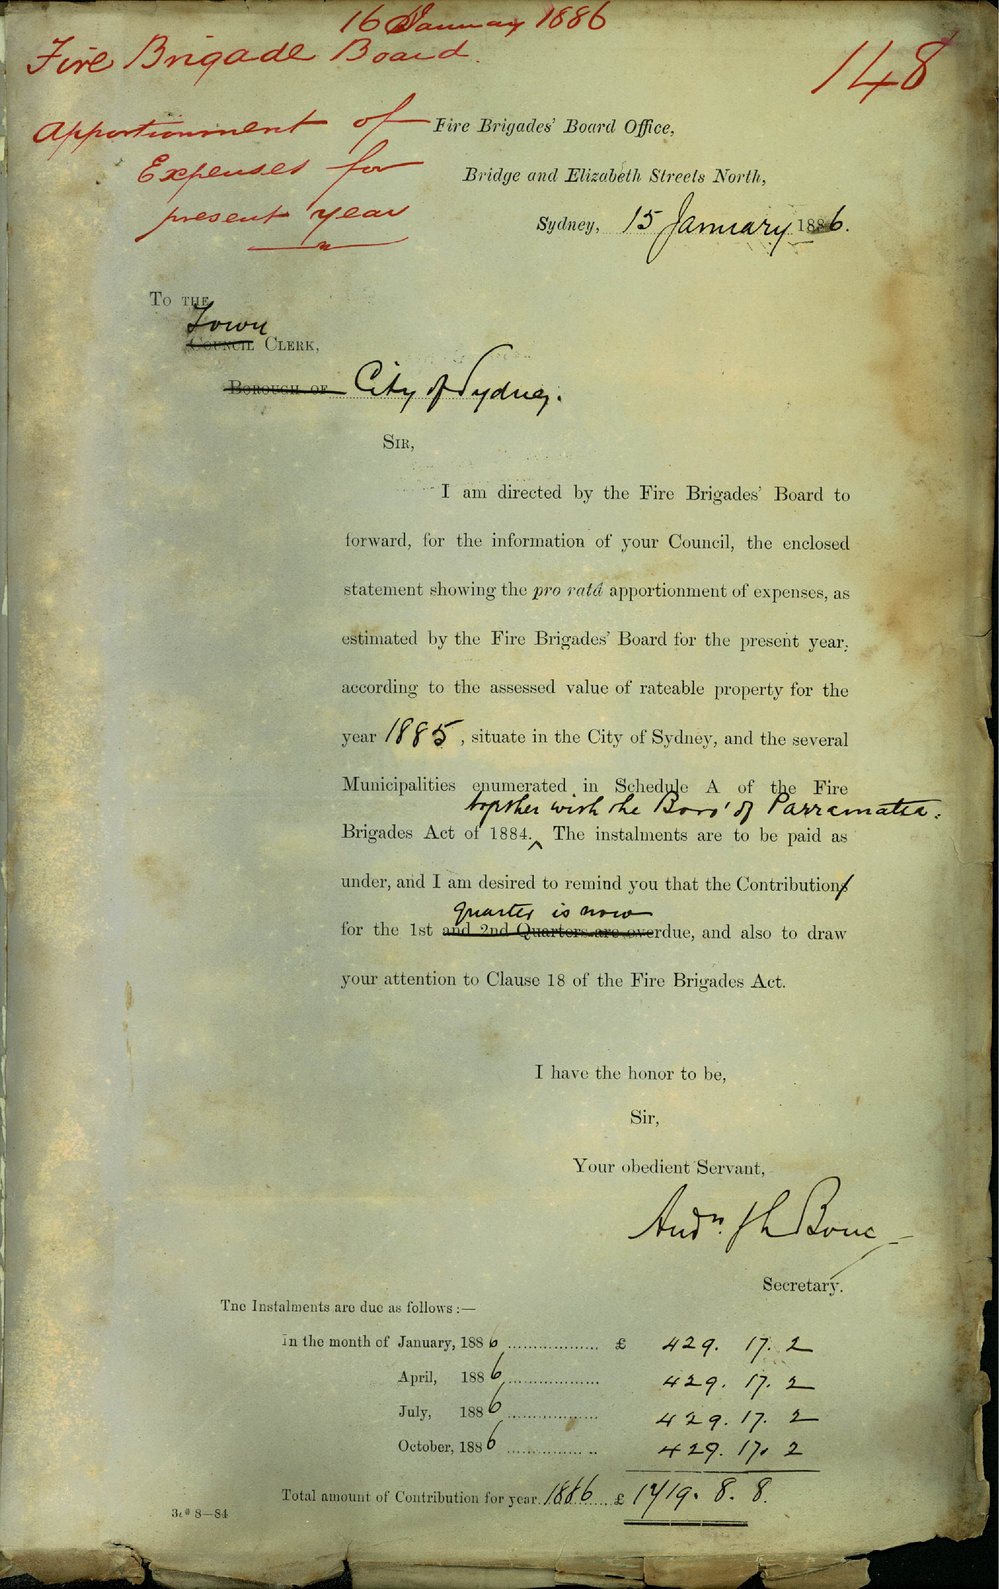 16 January 1886
Fire Brigade Board.
148
Apportionment of
Expenses for
present year
Fire Brigades' Board Office,
Bridge and Elizabeth Streets North,
Sydney, 15 January 1886.
To the
Town
Council Clerk,
Borough of City of Sydney.
Sir,
I am directed by the Fire Brigades' Board to
forward, for the information of your Council, the enclosed
statement showing the pro ratâ apportionment of expenses, as
estimated by the Fire Brigades' Board for the present year,
according to the assessed value of rateable property for the
year 1885, situate in the City of Sydney, and the several
Municipalities enumerated in Schedule A of the Fire
together with the Boro' of Parramatta.
Brigades Act of 1884. ‸ The instalments are to be paid as
under, and I am desired to remind you that the Contributions
quarter is now
for the 1st and 2nd Quarters are overdue, and also to draw
your attention to Clause 18 of the Fire Brigades Act.
I have the honor to be,
Sir,
Your obedient Servant,
Andn.
Secretary.
The Instalments are due as follows :—
In the month of January, 1886 .................. £ 429. 17. 2
April, 1886 .................. 429. 17. 2
July, 1886 .................. 429. 17. 2
October, 1886 .................. 429. 17. 2
Total amount of Contribution for year 1886 ...... £ 1719. 8. 8.
8—84